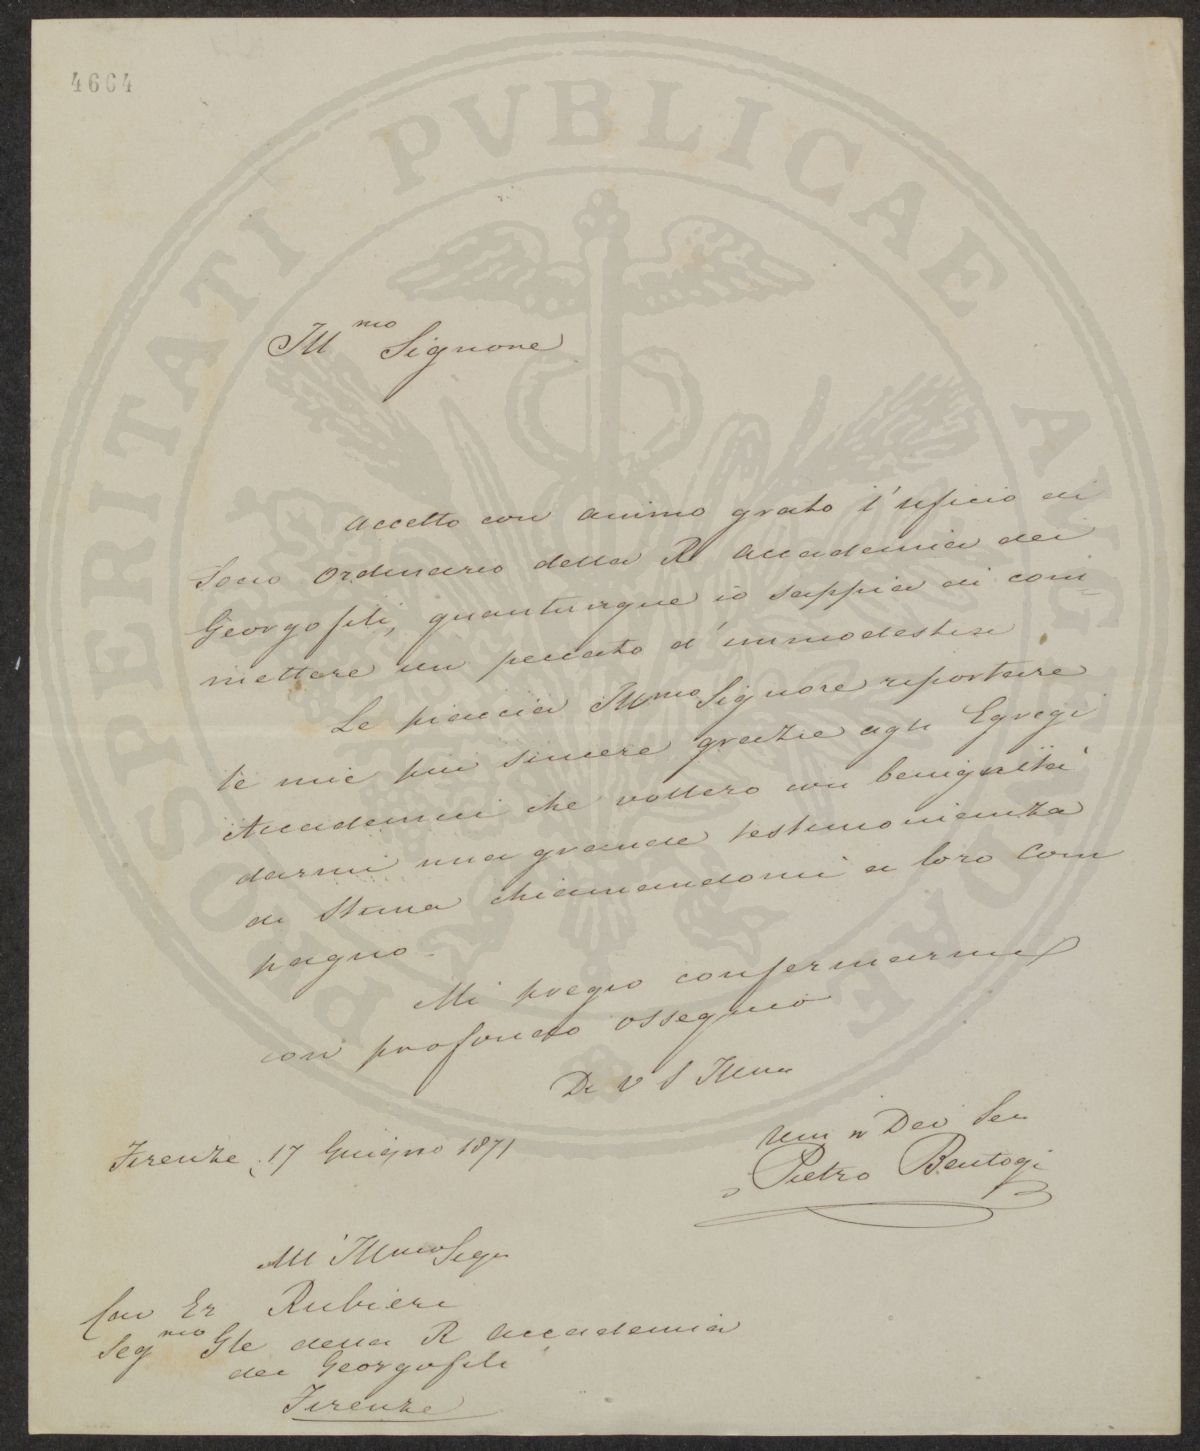 4664
PROSPERITATI PVBLICAE AVGENDAE
Ill.mo Signore
Accetto con animo grato l'uficio di
Socio Ordinario della R Accademia dei
Georgofili, quantunque io sappia di com=
mettere un peccato d'immodestia
Le piaccia Ill.mo Signore riportare
le mie piu sincere grazie agli Egregi
Accademici che vollero con benignità
darmi una grande testimonianza
di stima chiamandomi a loro com
pagno.
Mi pregio confermarmi
con profondo ossequio
Di V S Illma
Firenze, 17 Giugno 1871
Um Dev Ser
Pietro Bentogi
All'Illmo Sigr
Cav Er Rubieri
Segmo Gle della R Accademia
dei Georgofili
Firenze